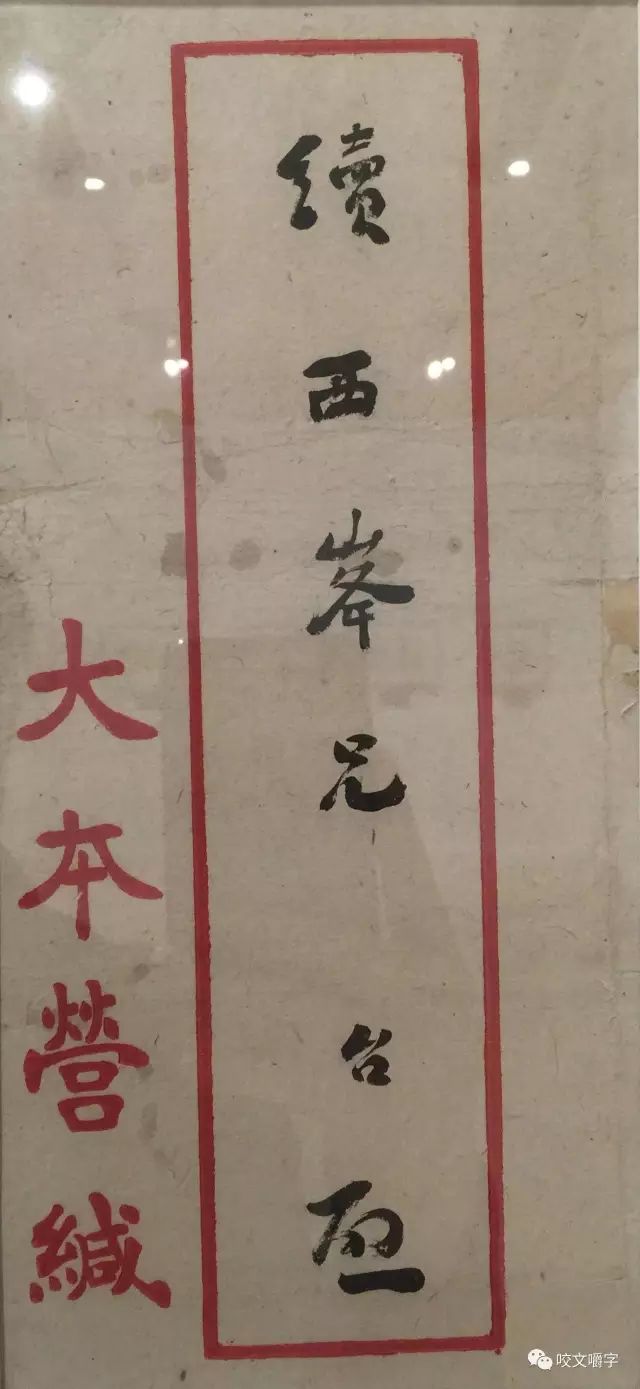 續西峯兄台
大本營緘
咬文嚼字